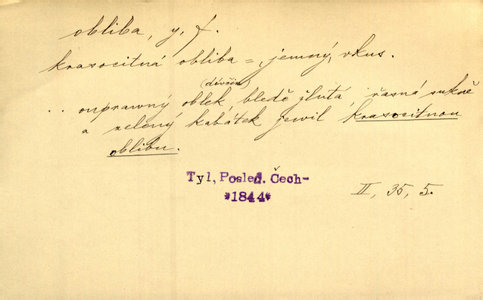 obliba, y, f.
krasocitná obliba = jemný vkus.
(dívčin)
.. úpravný oblek bledě žlutá řasná sukně
a zelený kabátek jevil krasocitnou
oblibu.
Tyl, Posled. Čech-
*1844*
II, 35, 5.